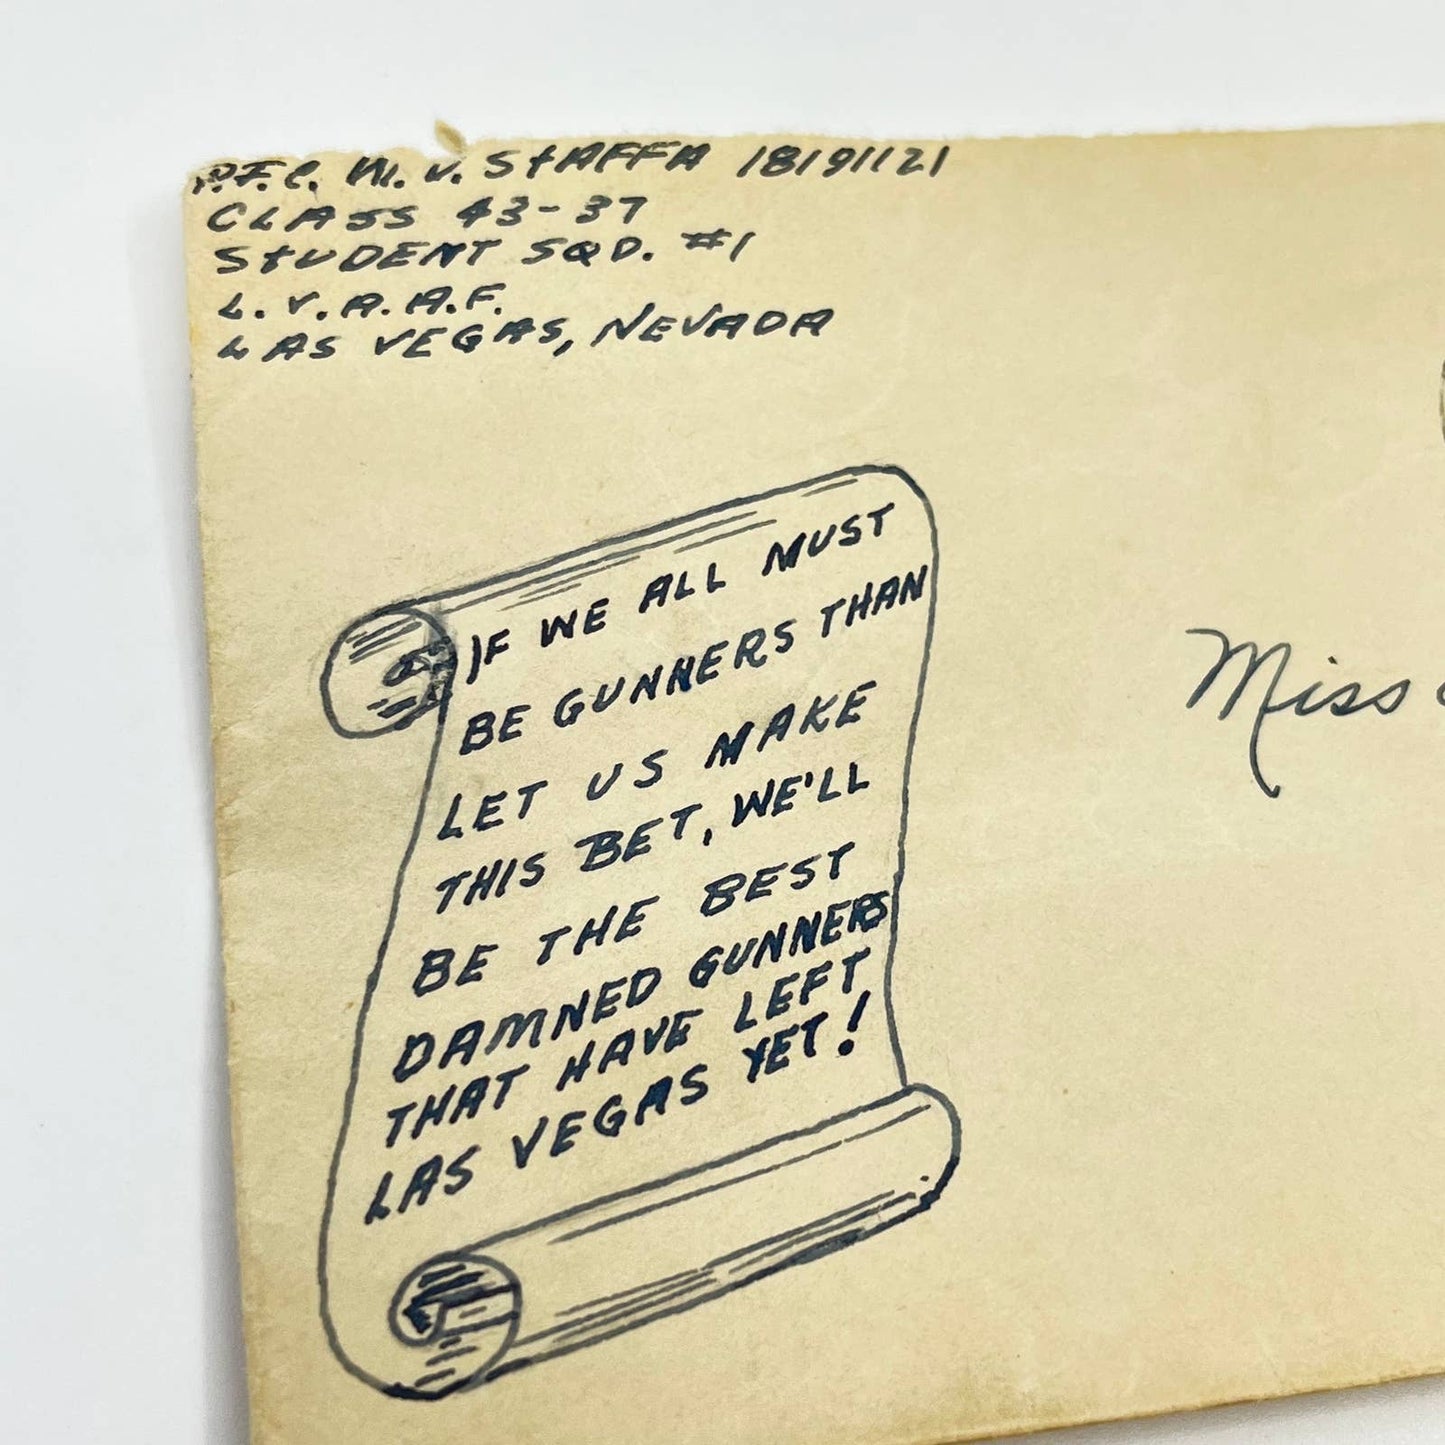 P.F.C. M. V. STAFFA 18191121
CLASS 43-37
STUDENT SQD. #1
L. V. A. A. F.
LAS VEGAS, NEVADA
IF WE ALL MUST
BE GUNNERS THAN
LET US MAKE
THIS BET, WE'LL
BE THE BEST
DAMNED GUNNERS
THAT HAVE LEFT
LAS VEGAS YET!
Miss